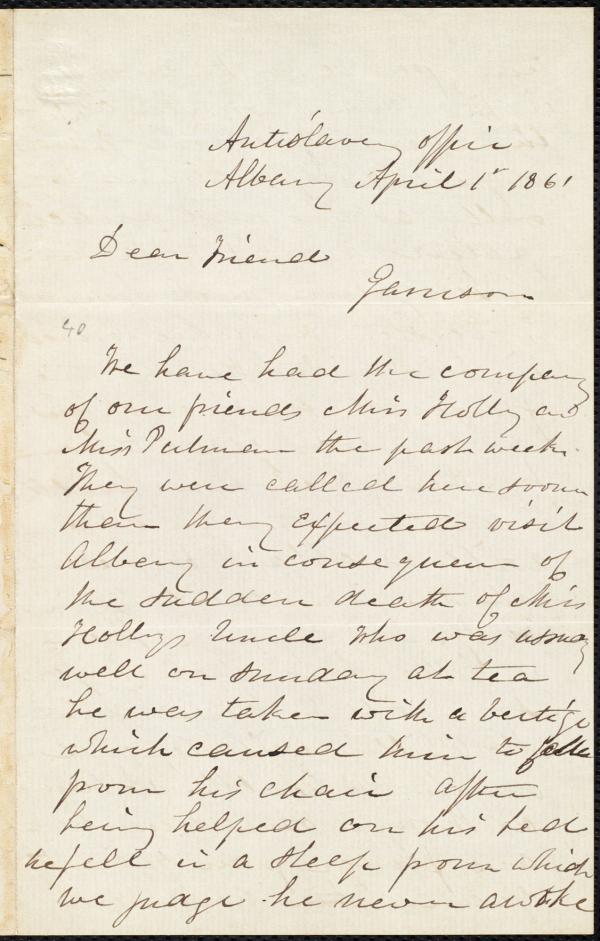 Antislavery office
Albany April 1st 1861
Dear Friend
Garrison
40
We have had the company
of our friends Miss Holley and
Miss Putman the past week.
They were called here sooner
than they expected visit
Albany in consequence of
the sudden death of Miss
Holleys Uncle who was usualy
well on Sunday at tea
he was taken with a vertigo
which caused him to falle
from his chair after
being helped on his bed
he fell in a sleep from which
we judge he never awoke